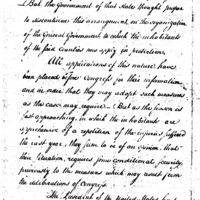 But the Government of that State thought proper
to discontinue this arrangement, on the organization
of the General Government, to which the inhabitants
of the said Counties now apply for protection.
All applications of this nature have
been placed before Congress for their information
and in order that they may adopt such measures
as the case may require. But as the season is
fast approaching, in which the inhabitants are
apprehensive of a repetition of the injuries suffered
the last year, they seem to be of an opinion, that
their situation, requires some conditional security
previously to the measures which may result from
the deliberations of Congress.
The President of the United States